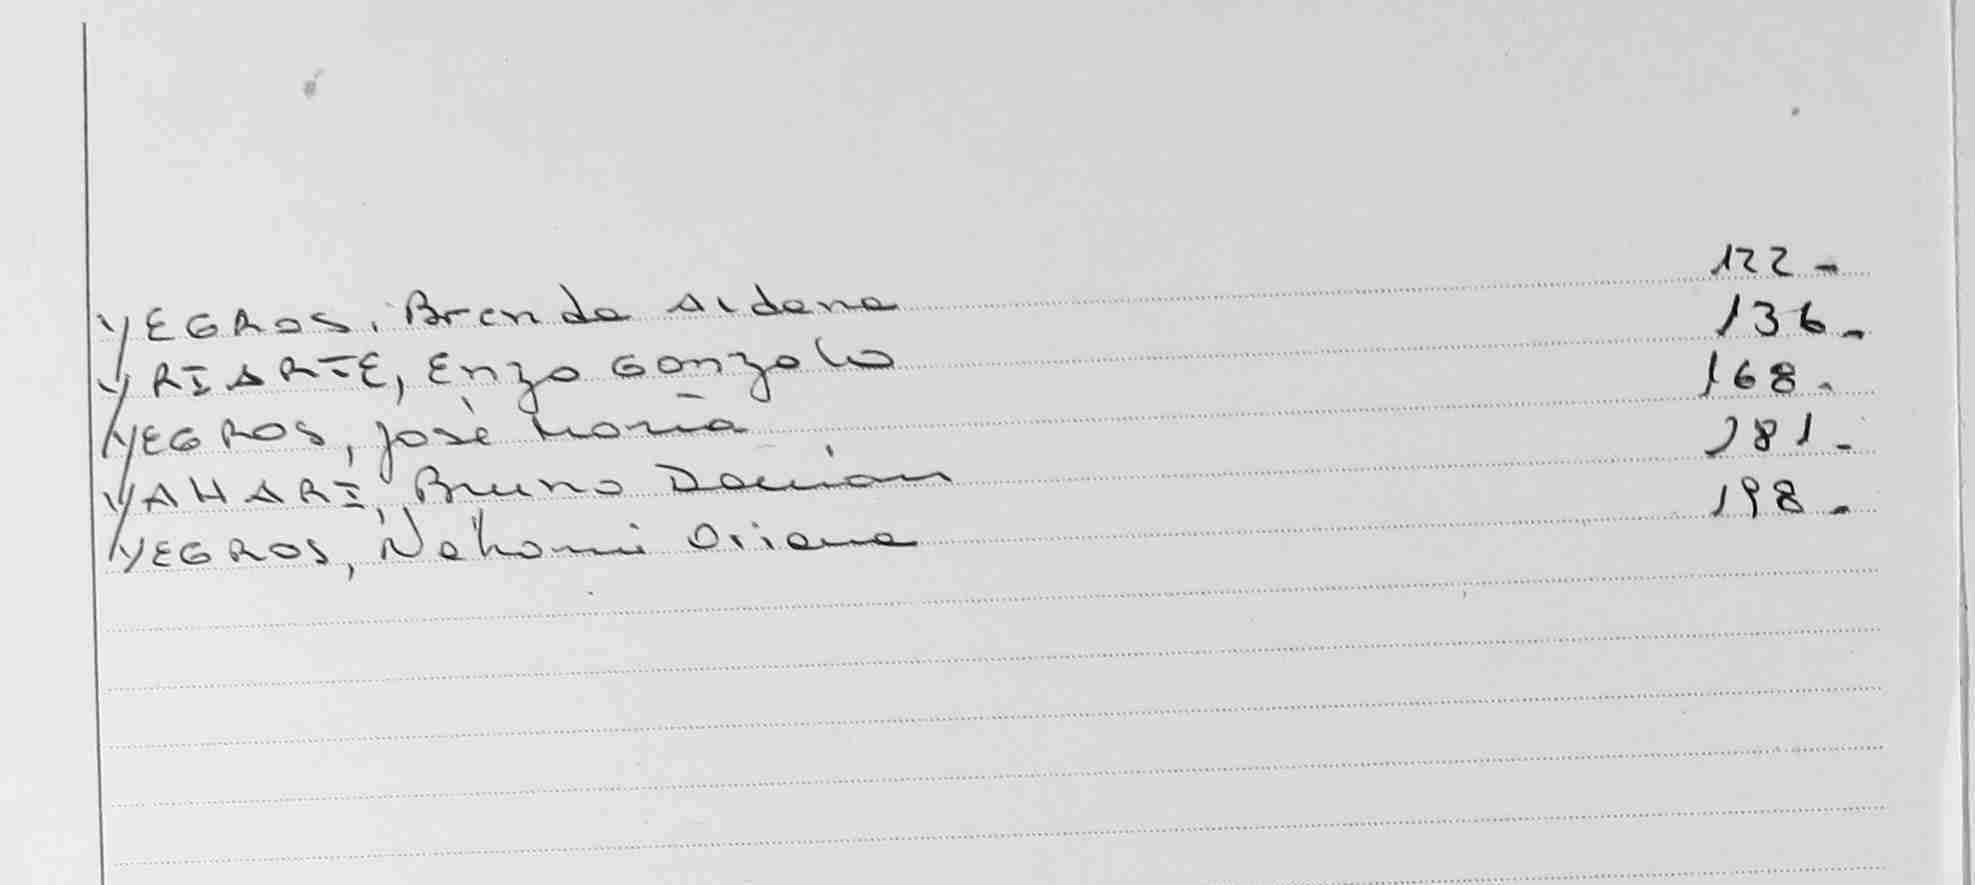 YEGROS, Brenda Aidana 122-
YRIARTE, Enzo Gonzalo 136-
YEGROS, José María 168-
YAHARI, Bruno Damián 181-
YEGROS, Nahomi Oriana 198-